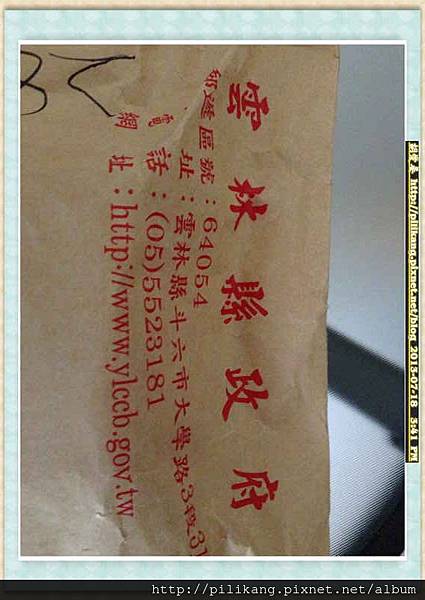 雲林縣政府
郵遞區號：64054
址：雲林縣斗六市大學路3段31
電話：(05)5523181
網址：http://www.ylccb.gov.tw
http://pilikang.pixnet.net/blog 2013-07-18 3:41 PM
http://pilikang.pixnet.net/album